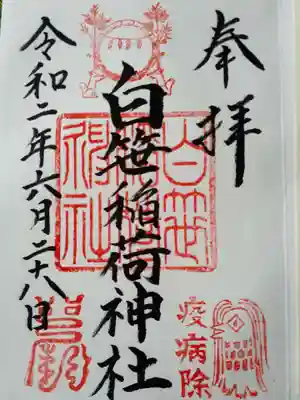 奉拝
白笹稲荷神社
令和二年六月二十八日
白笹稲荷神社
疫病除